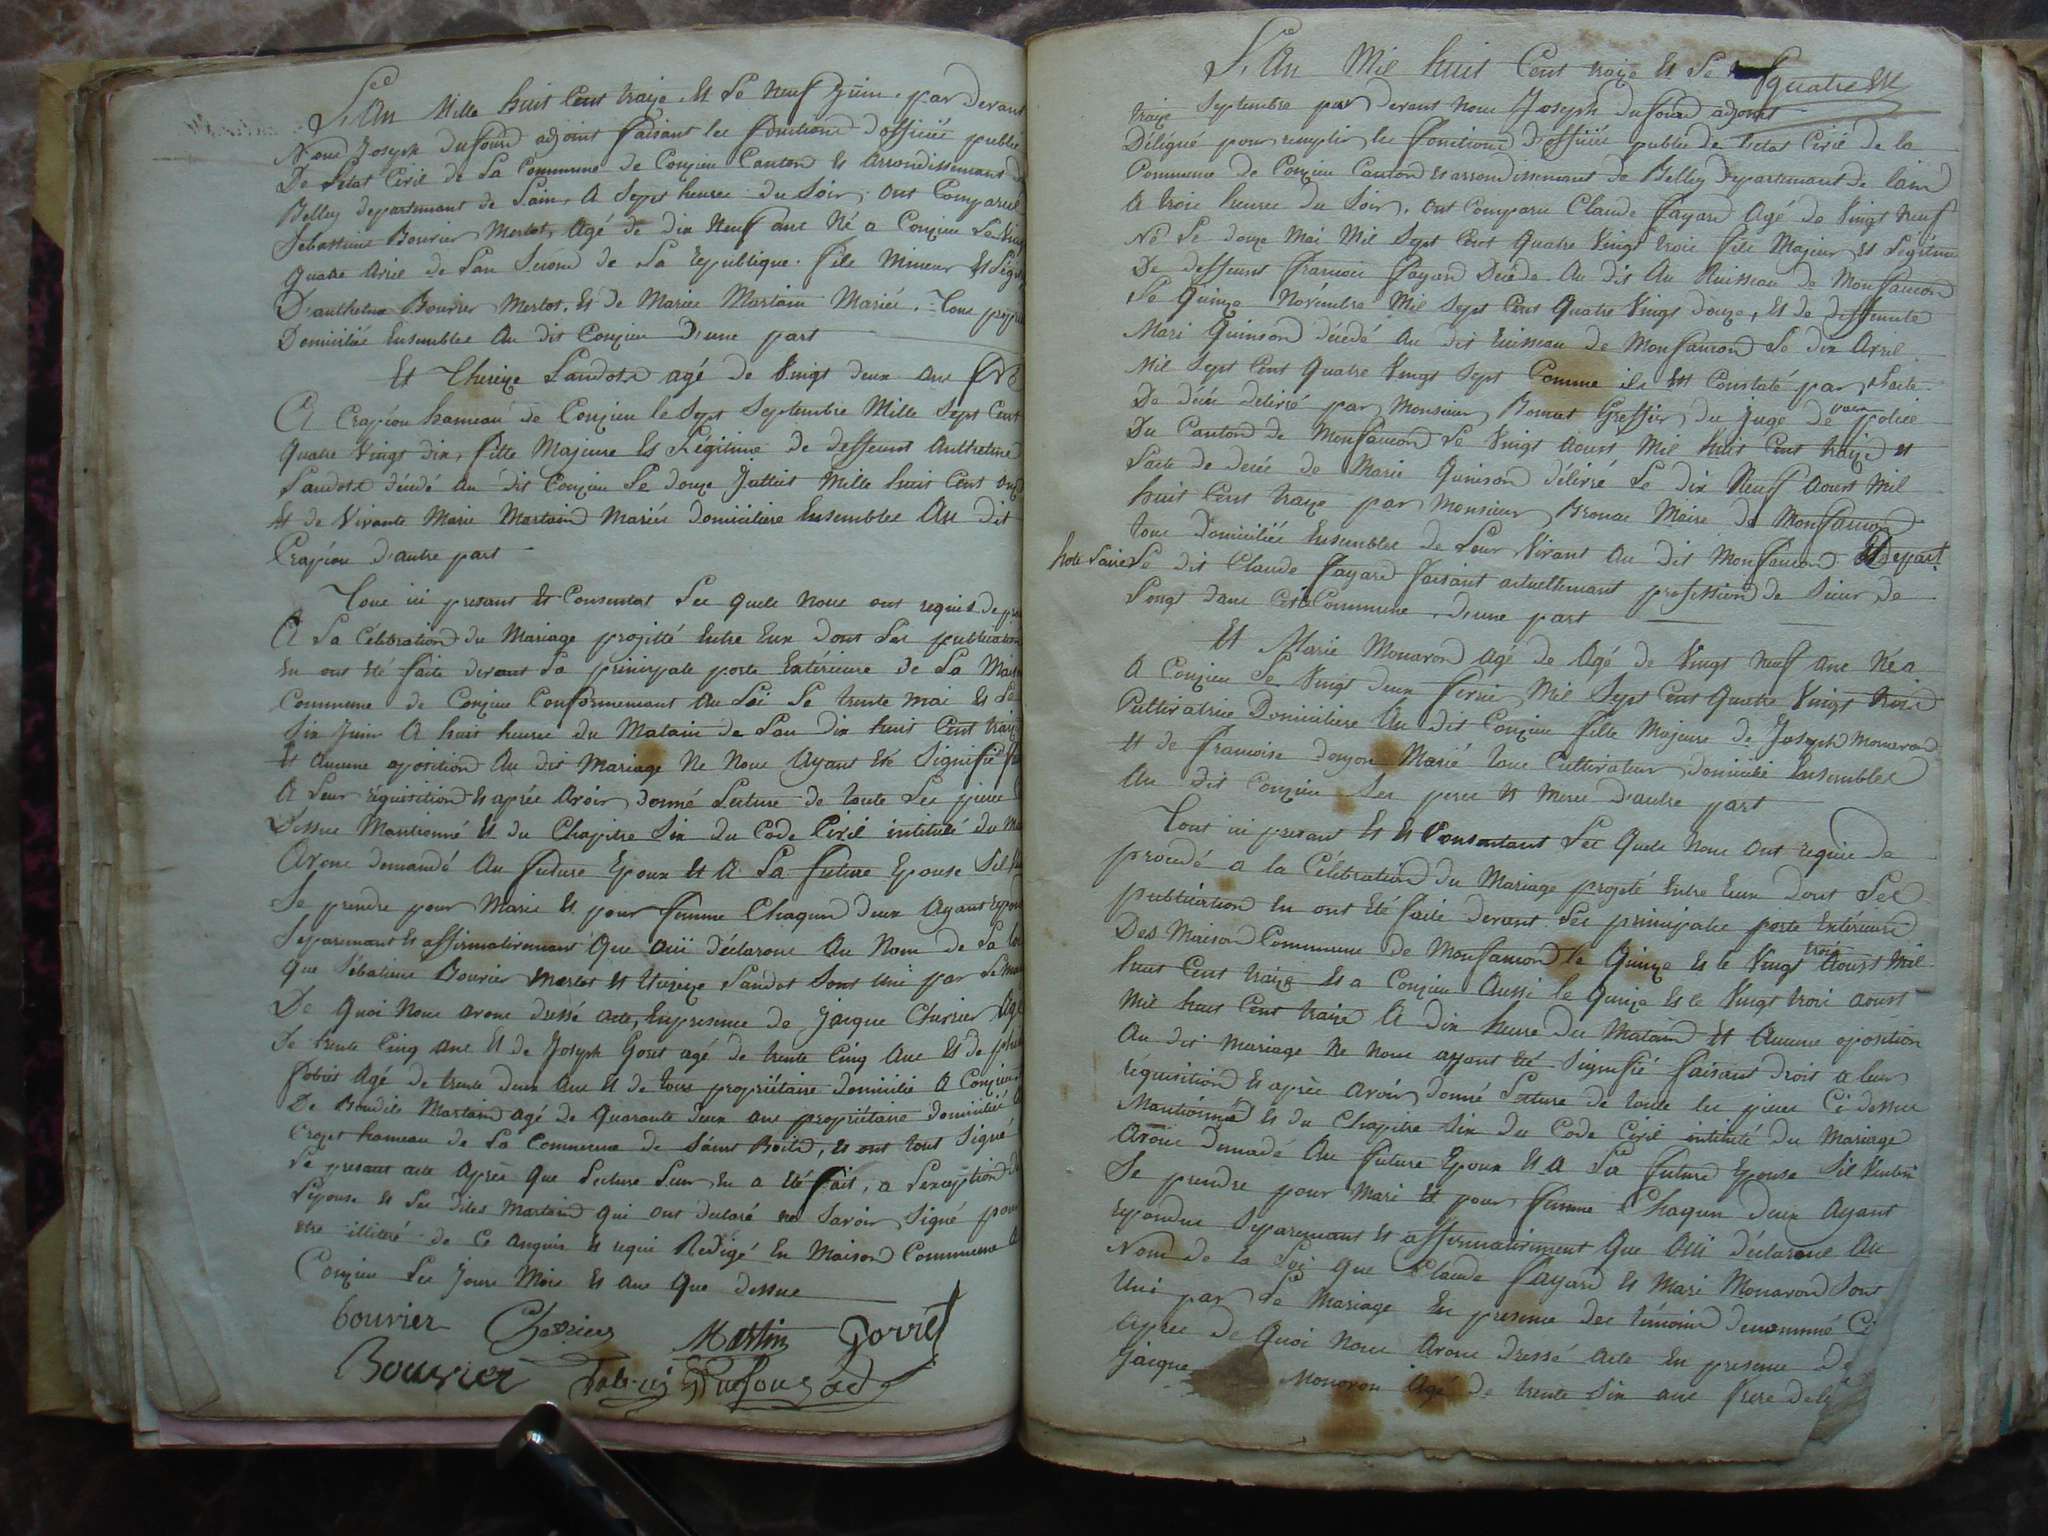 L'An Mille huit Cent traize Et Le neuf juin par Devant
Nous Joseph dufourd adjoint faisant les fonctions d'officier public
De Letat Civil de La Commune de Conzieu Canton Et arrondissement
Belley departement de Lain, A Sept heures du Soir ont Comparus
Sebastient Bouvier Merlot, Agé de dix Neuf ans Né a Conzieu Le
quatre Avril de Lan Second de La republique. fils Mineur Et
D'anthelme Bouvier Merlot, Et de Mariee Martain Mariés. Tous
Domiciliés Ensembles Au dit Conzieu D'une part
Et Thereize Landot agé de Vingt deux ans
A Crapéou hameau de Conzieu le Sept Septembre Mille Sept Cent
quatre Vingt dix, fille Majeure Et Légitime de deffunt Anthelme
Landot décédé Au dit Conzieu Le douze Juillet Mille huit Cent onze
Et de Vivante Marie Martain Mariés domiciliere Ensembles Au dit
Crapéou d'autre part
Tous ici present Et Consentat Les quels nous ont requis de
A La Célébration du Mariage projetté Entre Eux dont Les publication
En ont été faite devant La prinipale porte Extérieure de La Maison
Commune de Conzieu Conformemant Au Loi Le trente mai Et Le
Six Juin A huit heures du Matain de Lan dix huit Cent traize
Et Aucune oposition Au dit Mariage Ne Nous Ayant été Signifié
A Leur réquisition Et après Avoir donné Lecture de toute Les pieces
Dessus Mantionné Et du Chapitre Six du Code Civil intitulé du
Avons demandé Au future Epoux Et A La future Epouse Sil
Se prendre pour Marie Et pour femme Chaqun deux Ayant
Separemant Et affirmativemant Que ouï déclarons Au Nom de La
que Sébatient Bouvier Merlot Et thereize Landot Sont Uni par Le
De Quoi Nous avons dréssé acte, En presence de Jacque Chervier Agé
De trente Cinq ans Et de Joseph Gorret agé de trente Cinq Ans Et de
fabris Agé de trente deux ans Et de tous propriétaire domicilié A Conzieu
De Bendit Martaind agé de Quarante Deux ans propriétaire domicilié
hameau de La Commune de Saint Boild, Et ont tous Signé
Le present acte Après Que Lecture Leur En a été fait, a Lexception
Lépouse Et Les dites Martaind qui ont déclaré ne Savoir Signé pour
etre illitéré de Ce Anquis Et requi Redigé En Maison Commune
Conzieu Les Jours Mois Et ans Que dessus
bouvier Chervier Martin Gorret
Bouvier fabris Dufour ad
L'An Mil huit Cent traize Et Le quatre
traize Septembre par devant nous Joseph dufourd adjoint
Déligué pour remplir les fonctions D'officier public de Letat Civil de la
Commune de Conzieu Canton Et arrondissemant de Belley Departemant de Lain
A trois heures du Soir, ont Comparu Claude fayard Agé de Vingt neuf
Né Le douze Mai Mil Sept Cent Quatre Vingt trois fils Majeur Et Légitime
De deffunt francois fayard Décédé Au dit Au Ruisseau de Monfaucon
Le Quinze Novémbre Mil Sept Cent Quatre Vingt douze, Et de deffunte
Mari Quinson décédé Au dit ruisseau de Monfaucon Le dix Avril
Mil Sept Cent Quatre Vingt Sept Comme ils Est Constaté par Lacte
De décés delivré par Monsieur Bonnet Greffier du Juge De police
Du Canton de Monfaucon Le Vingt Aoust Mil huit Cent traize Et
Lacte de décés de Marie Quinson délivré Le dix Neuf Aoust Mil
huit Cent traize par Monsieur Bronac Maire de Monfaucon
tous Domiciliés Ensembles de Leur Vivant Au dit Monfaucon
Le dit Claude fayard faisant actuellement profession de Sieur de
Longt dans Cette Commune D'une part
Et Marie Monaron agé de Agé de Vingt Neuf ans Né a
A Conzieu Le Vingt deux fevrié Mil Sept Cent Quatre Vingt trois
Cultivatrice Domiciliere Au dit Conzieu fille Majeure de Joseph Monaron
Et de francoise donjon Marié tous Cultivateur domicilié Ensembles
Au dit Conzieu Ses peres Et meres D'autre part
Tous ici present Et Et Consentant Les Quels Nous ont requis de
procedé a la Célébration du Mariage projeté Entre Eux dont Les
publication En ont été faite devant Les prinipales porte Extérieure
Des Maison Commune de Monfaucon le Quinze Et le Vingt trois Aoust Mil
huit Cent traize Et a Conzieu Aussi le Quinze Et le Vingt trois aoust
Mil huit Cent traize A dix heure du Matain Et Aucune oposition
Au dit Mariage Ne Nous ayant été Signifié faisant droit a leur
réquisition Et après Avoir donné Lecture de toute les pieces Ci dessus
Mantionné Et du Chapitre Six du Code Civil intitulé du Mariage
Avons demadé Au future Epoux Et A La future Epouse Sil Veulent
Se prendre pour Mari Et pour femme Chaqun deux Ayant
repondue Separemant Et affirmativement Que Ouï déclarons Au
Nom de la Loi que Claude fayard Et Mari Monaron Sont
Uni par Le Mariage En presence des témoins denommé Ci
Apres de Quoi Nous Avons dressé acte En presence De
Jacque Monaron Agé de trente Six ans frere de